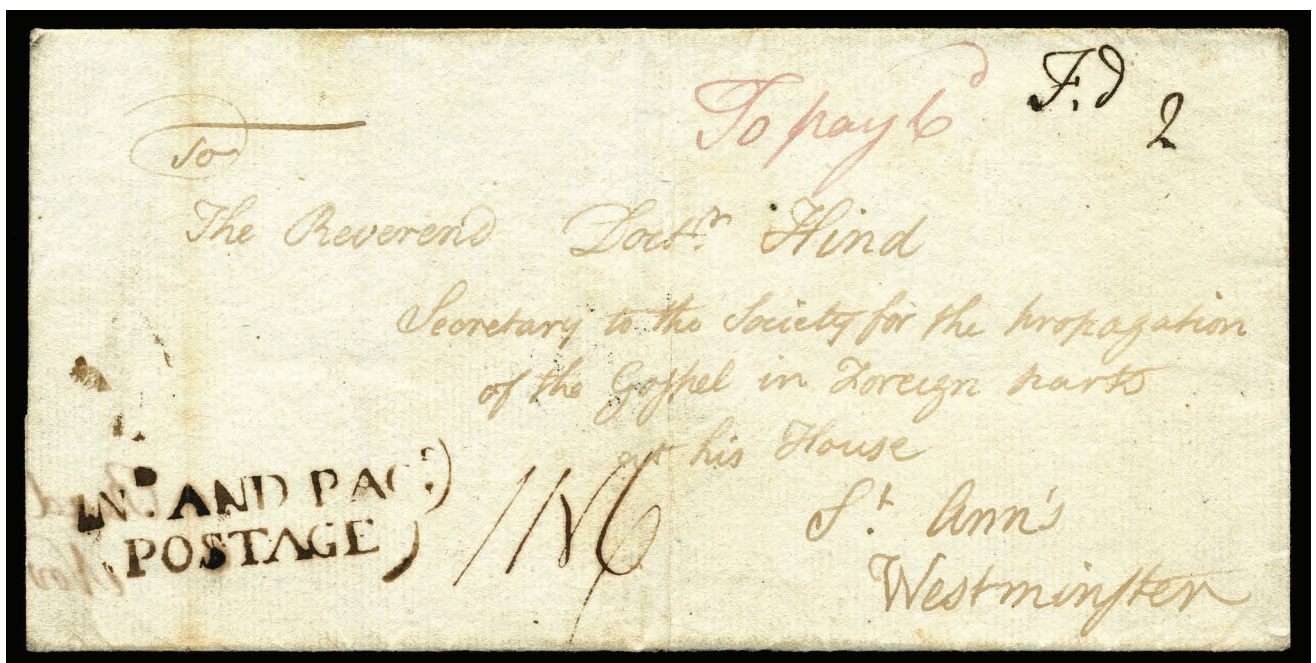 To pay 6d
F.d
2
To
The Reverend Doct.r Hind
Secretary to the Society for the propagation
of the Gospel in Foreign parts
at his House
St. Ann's
Westminster
IN.D AND PAC:)
POSTAGE)
1N6